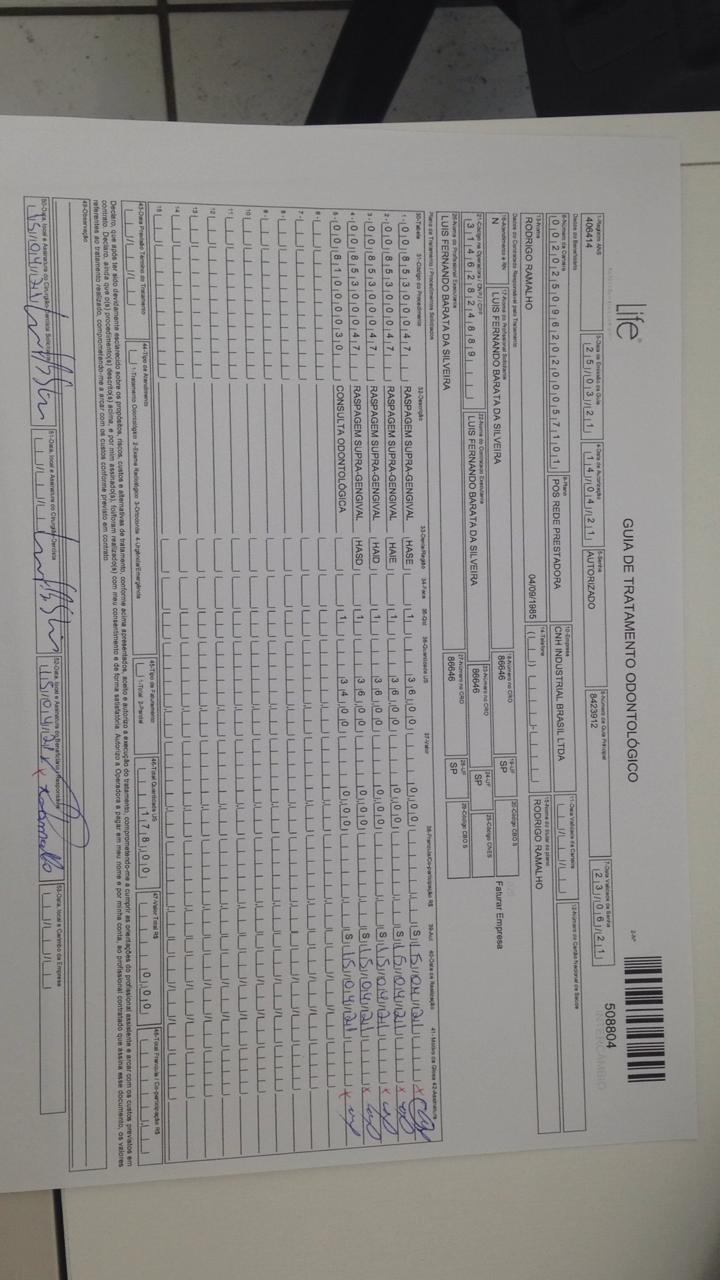 Life
GUIA DE TRATAMENTO ODONTOLÓGICO
2-Nº
508804
1-Registro ANS
406414
3-Data de Emissão da Guia
25/03/21
4-Data de Autorização
14/04/21
5-Senha
AUTORIZADO
6-Número da Guia Principal
8423912
7-Data Validade da Senha
23/06/21
Dados do Beneficiário
8-Número da Carteira
9-Plano
POS REDE PRESTADORA
10-Empresa
CNH INDUSTRIAL BRASIL LTDA
11-Data Validade da Carteira
12-Número do Cartão Nacional de Saúde
13-Nome
RODRIGO RAMALHO
04/09/1985
14-Telefone
15-Nome do titular do plano
RODRIGO RAMALHO
Dados do Contratado Responsável pelo Tratamento
N
17-Nome do Profissional Solicitante
LUIS FERNANDO BARATA DA SILVEIRA
18-Número no CRO
86646
19-UF
SP
20-Código CBO S
Faturar Empresa
21-Código na Operadora / CNPJ / CPF
31462824889
22-Nome do Contratado Executante
LUIS FERNANDO BARATA DA SILVEIRA
23-Número no CRO
86646
24-UF
SP
25-Código CNES
26-Nome do Profissional Executante
LUIS FERNANDO BARATA DA SILVEIRA
27-Número no CRO
86646
28-UF
SP
29-Código CBO S
Plano de Tratamento / Procedimentos Solicitados
30-Tabela 31-Código do Procedimento 32-Descrição 33-Dente/Região 34-Face 35-Qtd 36-Quantidade US 37-Valor 38-Franquia/Co-participação R$ 39-Aut 40-Data de Realização 41-Motivo da Glosa 42-Assinatura
1- 00 85300047 RASPAGEM SUPRA-GENGIVAL HASE 1 36,00 0,00 S 15/04/21 x
2- 00 85300047 RASPAGEM SUPRA-GENGIVAL HAIE 1 36,00 0,00 S 15/04/21 x
3- 00 85300047 RASPAGEM SUPRA-GENGIVAL HAID 1 36,00 0,00 S 15/04/21 x
4- 00 85300047 RASPAGEM SUPRA-GENGIVAL HASD 1 36,00 0,00 S 15/04/21 x
5- 00 81000030 CONSULTA ODONTOLÓGICA 1 34,00 0,00 S 15/04/21 x
6-
7-
8-
9-
10
11
12
13
14
15
43-Data Prevista Término do Tratamento
44-Tipo de Atendimento
1-Tratamento Odontológico 2-Exame Radiológico 3-Ortodontia 4-Urgência/Emergência
45-Tipo de Faturamento
1-Total 2-Parcial
46-Total Quantidade US
178,00
47-Valor Total R$
0,00
48-Total Franquia / Co-participação R$
Declaro, que após ter sido devidamente esclarecido sobre os propósitos, riscos, custos e alternativas de tratamento, conforme acima apresentados, aceito e autorizo a execução do tratamento, comprometendo-me a cumprir as orientações do profissional assistente e arcar com os custos previstos em
contrato. Declaro, ainda que o(s) procedimento(s) descrito(s) acima, e por mim assinado(s), foi/foram realizado(s) com meu consentimento e de forma satisfatória. Autorizo a Operadora a pagar em meu nome e por minha conta, ao profissional contratado que assina esse documento, os valores
referentes ao tratamento realizado, comprometendo-me a arcar com os custos conforme previsto em contrato
49-Observação
50-Data, local e Assinatura do Cirurgião-Dentista Solicitante
15/04/21
51-Data, local e Assinatura do Cirurgião-Dentista
52-Data, local e Assinatura do Beneficiário / Responsável
15/04/21 x
53-Data, local e Carimbo da Empresa